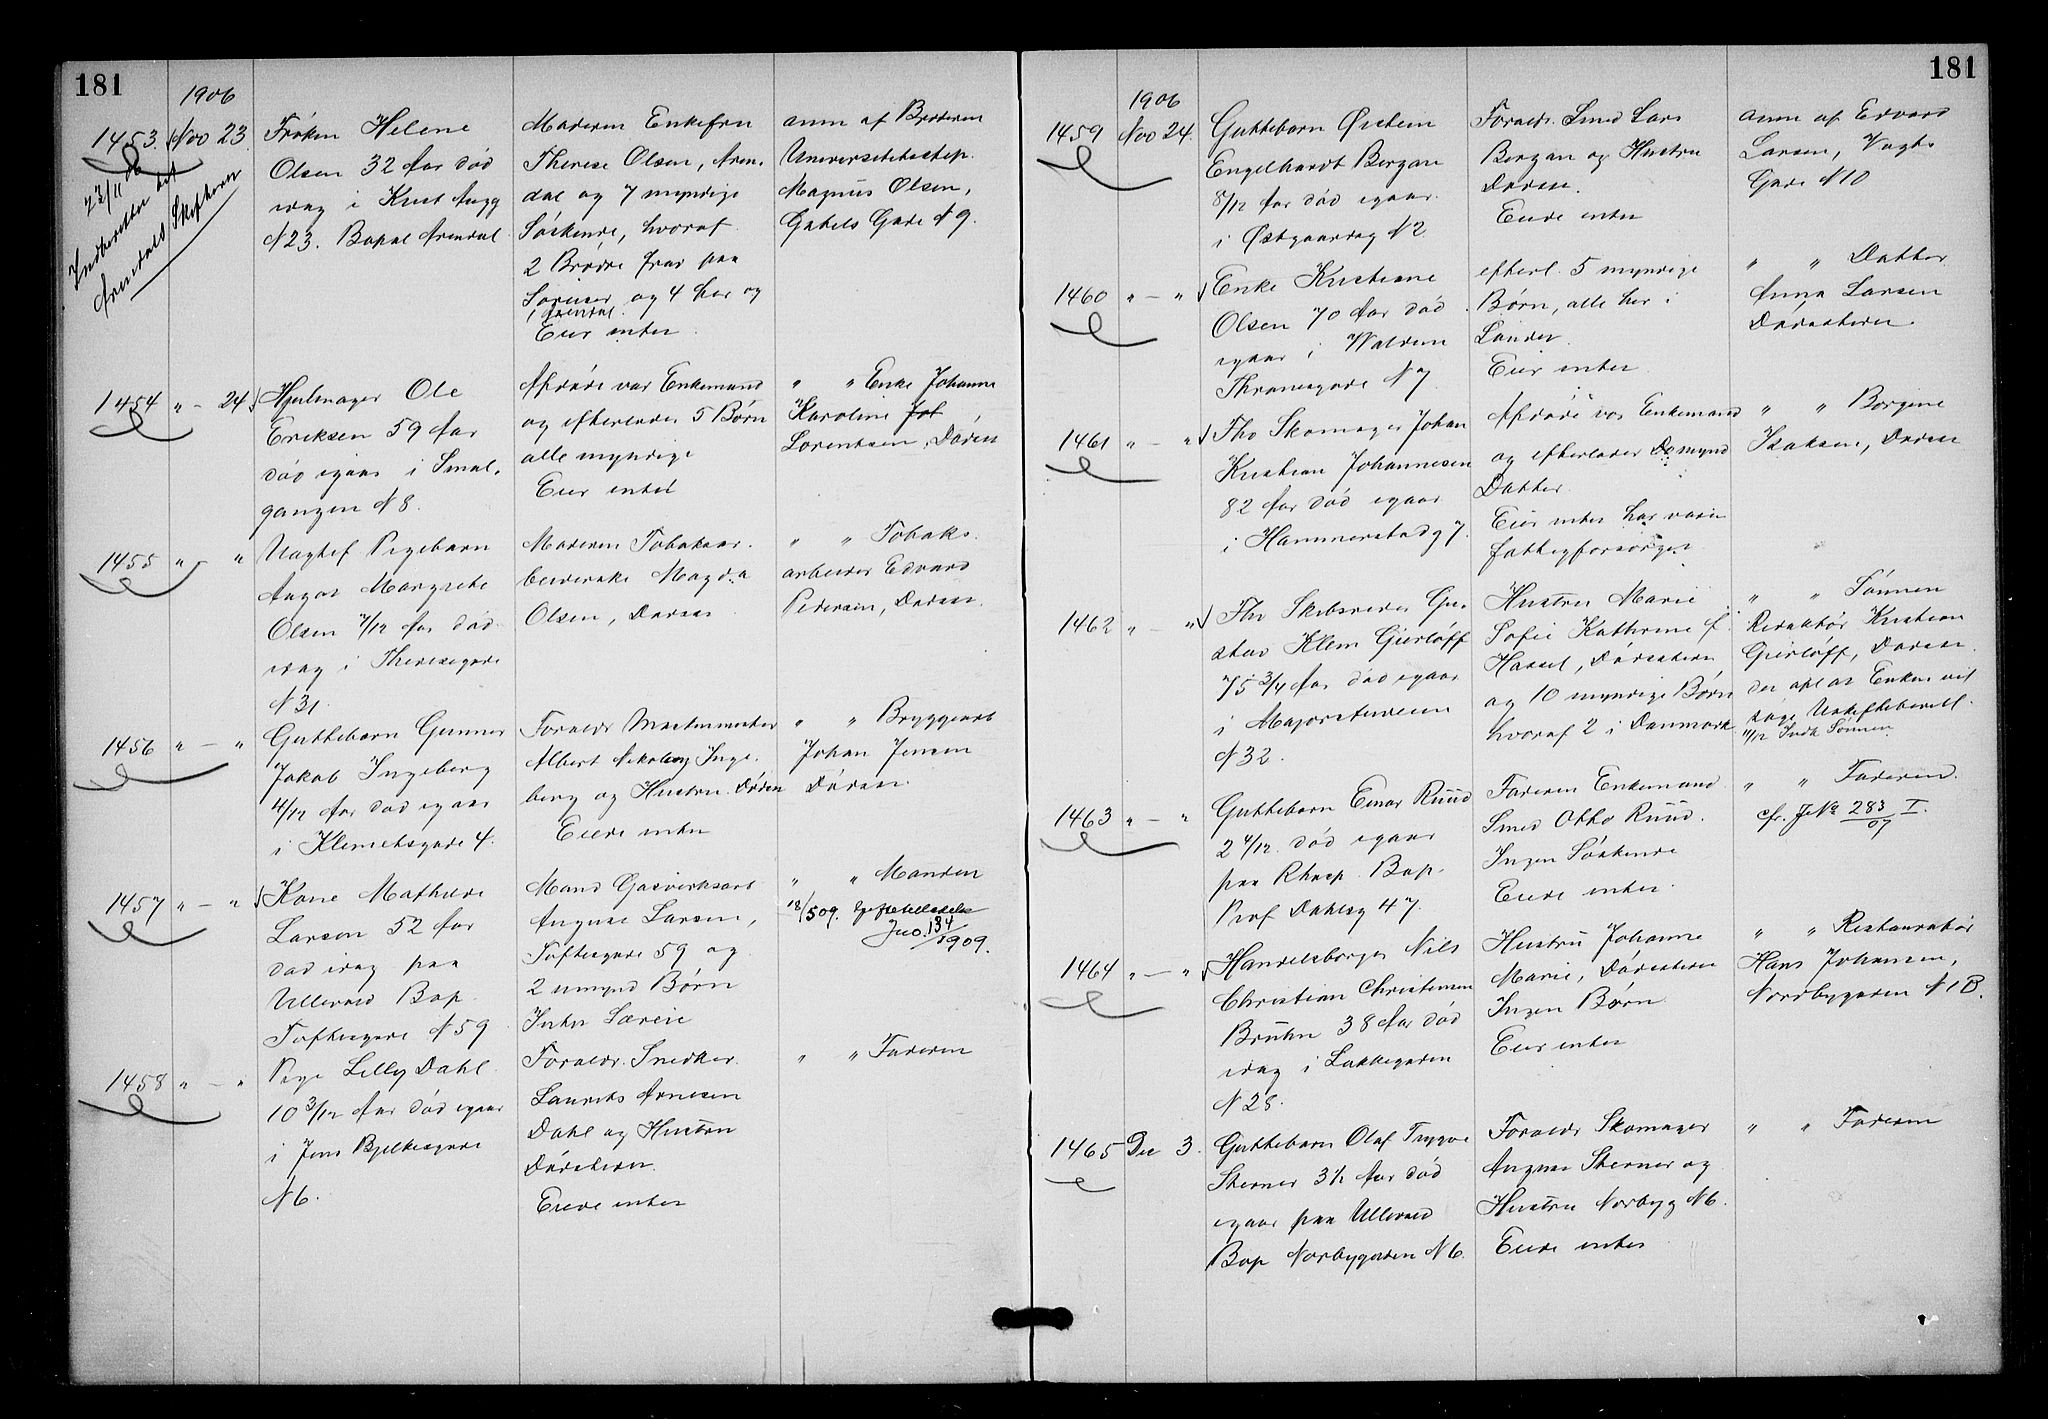 181
1906
1453. Nov 23.
23/11 06
Indberettet til
Arendals Skifteret
Frøken Helene
Olsen 32 Aar død
idag i Krist Augg
N 23. Bopæl Arendal
Moderen Enkefru
Therese Olsen, Aren-
dal og 7 myndige
Søskende, hvoraf
2 Brødre fra paa
og 4 her og
i Arendal.
Eier intet
anm af Broderen
Universitetsstip.
Magnus Olsen,
Gabels Gade N 9.
1454 " - 24
Hjulmager Ole
Eriksen 59 Aar
død igaar i Smal-
gangen N 8.
Afdøde var Enkemand
og efterlader 5 Børn
alle myndige
Eier intet
" " Enke Johanne
Karoline Joh
Lorentsen, Dødsst
1455 " - "
Uægtef Pigebarn
Aagot Margrethe
Olsen 7/12 Aar død
idag i Theresegade
N 31
Moderen Tobaksar-
beiderske Magda
Olsen, Dødsst
" " Tobaks-
arbeider Edvard
Pedersen, Dødsst.
1456 " - "
Guttebarn Gunnar
Jakob Ingeberg
4/12 Aar død igaar
i Klemetsgade 4.
Forældr Murmester
Albert Nikolay Inge-
berg og Hustru Dødsst
Eiede intet
" " Bryggearb
Johan Jensen
Dødsst
1457 " - "
Kone Mathilde
Larsen 52 Aar
død idag paa
Ullevaal Bop
Toftesgade N 59
Mand Gasverksarb
August Larsen,
Toftesgade 59 og
2 umynd Børn
Intet Særeie
" " Manden
18/5 09. Giftetilladelse
Jno. 134/1909.
1458 " - "
Pige Lilly Dahl
10 3/12 Aar død igaar
i Jens Bjelkesgade
N 6.
Forældr. Snedker
Laurits Arnesen
Dahl og Hustru
Dødsstedet.
Eiede intet
" " Faderen
181
1906
1459 Nov 24.
Guttebarn Øistein
Engelhardt Bergan
8/12 Aar død igaar
i Østgaardsg N 2
Forældr. Smed Lars
Bergan og Hustru
Dødsst.
Eiede intet
anm af Edvard
Larsen, Vogts
Gade N 10
1460 " - "
Enke Kristiane
Olsen 70 Aar død
igaar i Waldem
Thranesgade N 7
efterl. 5 myndige
Børn, alle her i
Landet.
Eier intet
" " Datter
Anna Larsen
Dødsstedet.
1461 " - "
Fhv Skomager Johan
Kristian Johannesen
82 Aar død igaar
i Hammerstadg 7.
Afdøde var Enkemand
og efterlader mynd
Datter.
Eier intet har været
fattigforsørget
" " Borgine
Isaksen, Dødsst
1462 " - "
Fhv Skibsreder Gu-
stav Klem Gierløff
75 3/4 Aar død igaar
i Majorstuveien
N 32.
Hustru Marie
Sofie Kathrine f.
Hassel, Dødsstedet
og 10 myndige Børn
hvoraf 2 i Danmark
" " Sønnen
Redaktør Kristian
Gierløff, Dødsst.
der opl at Enken vil
søge Uskiftebevill.
11/12 Indk Sønnen
1463 " - "
Guttebarn Einar Ruud
2 4/12 død igaar
paa Rhosp. Bop.
Prof Dahlsg 47.
Faderen Enkemand
Smed Otto Ruud.
Ingen Søskende
Eiede intet.
" " Faderen.
cfr. JNo 283/07 I.
1464 " - "
Handelsborger Nils
Christian Christensen
Bruhn 38 Aar død
idag i Lakkegaden
N 28.
Hustru Johanne
Marie, Dødsstedet
Ingen Børn
Eier intet
" " Restauratør
Hans Johansen,
Nordbygaden N 1 B.
1465 Dec 3.
Guttebarn Olaf Trygve
Sterner 3 1/2 Aar død
igaar paa Ullevaal
Bop Norbygaden N 6.
Forældr Skomager
August Sterner og
Hustru Norbyg N 6.
Eiede intet
" " Faderen